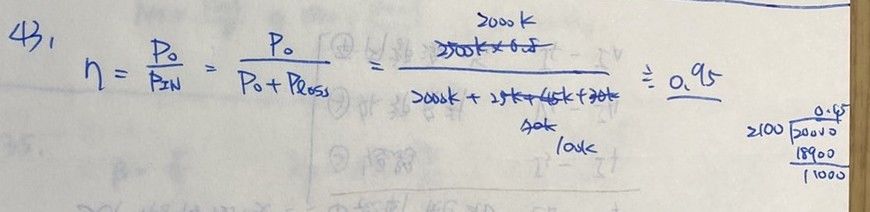 43.
η = Po/PIN = Po/(Po + Ploss) = 2000k/(2000k + 100k) ≒ 0.95
2500k × 0.8
25k + 45k + 30k
0.95
2100 20000
18900
11000